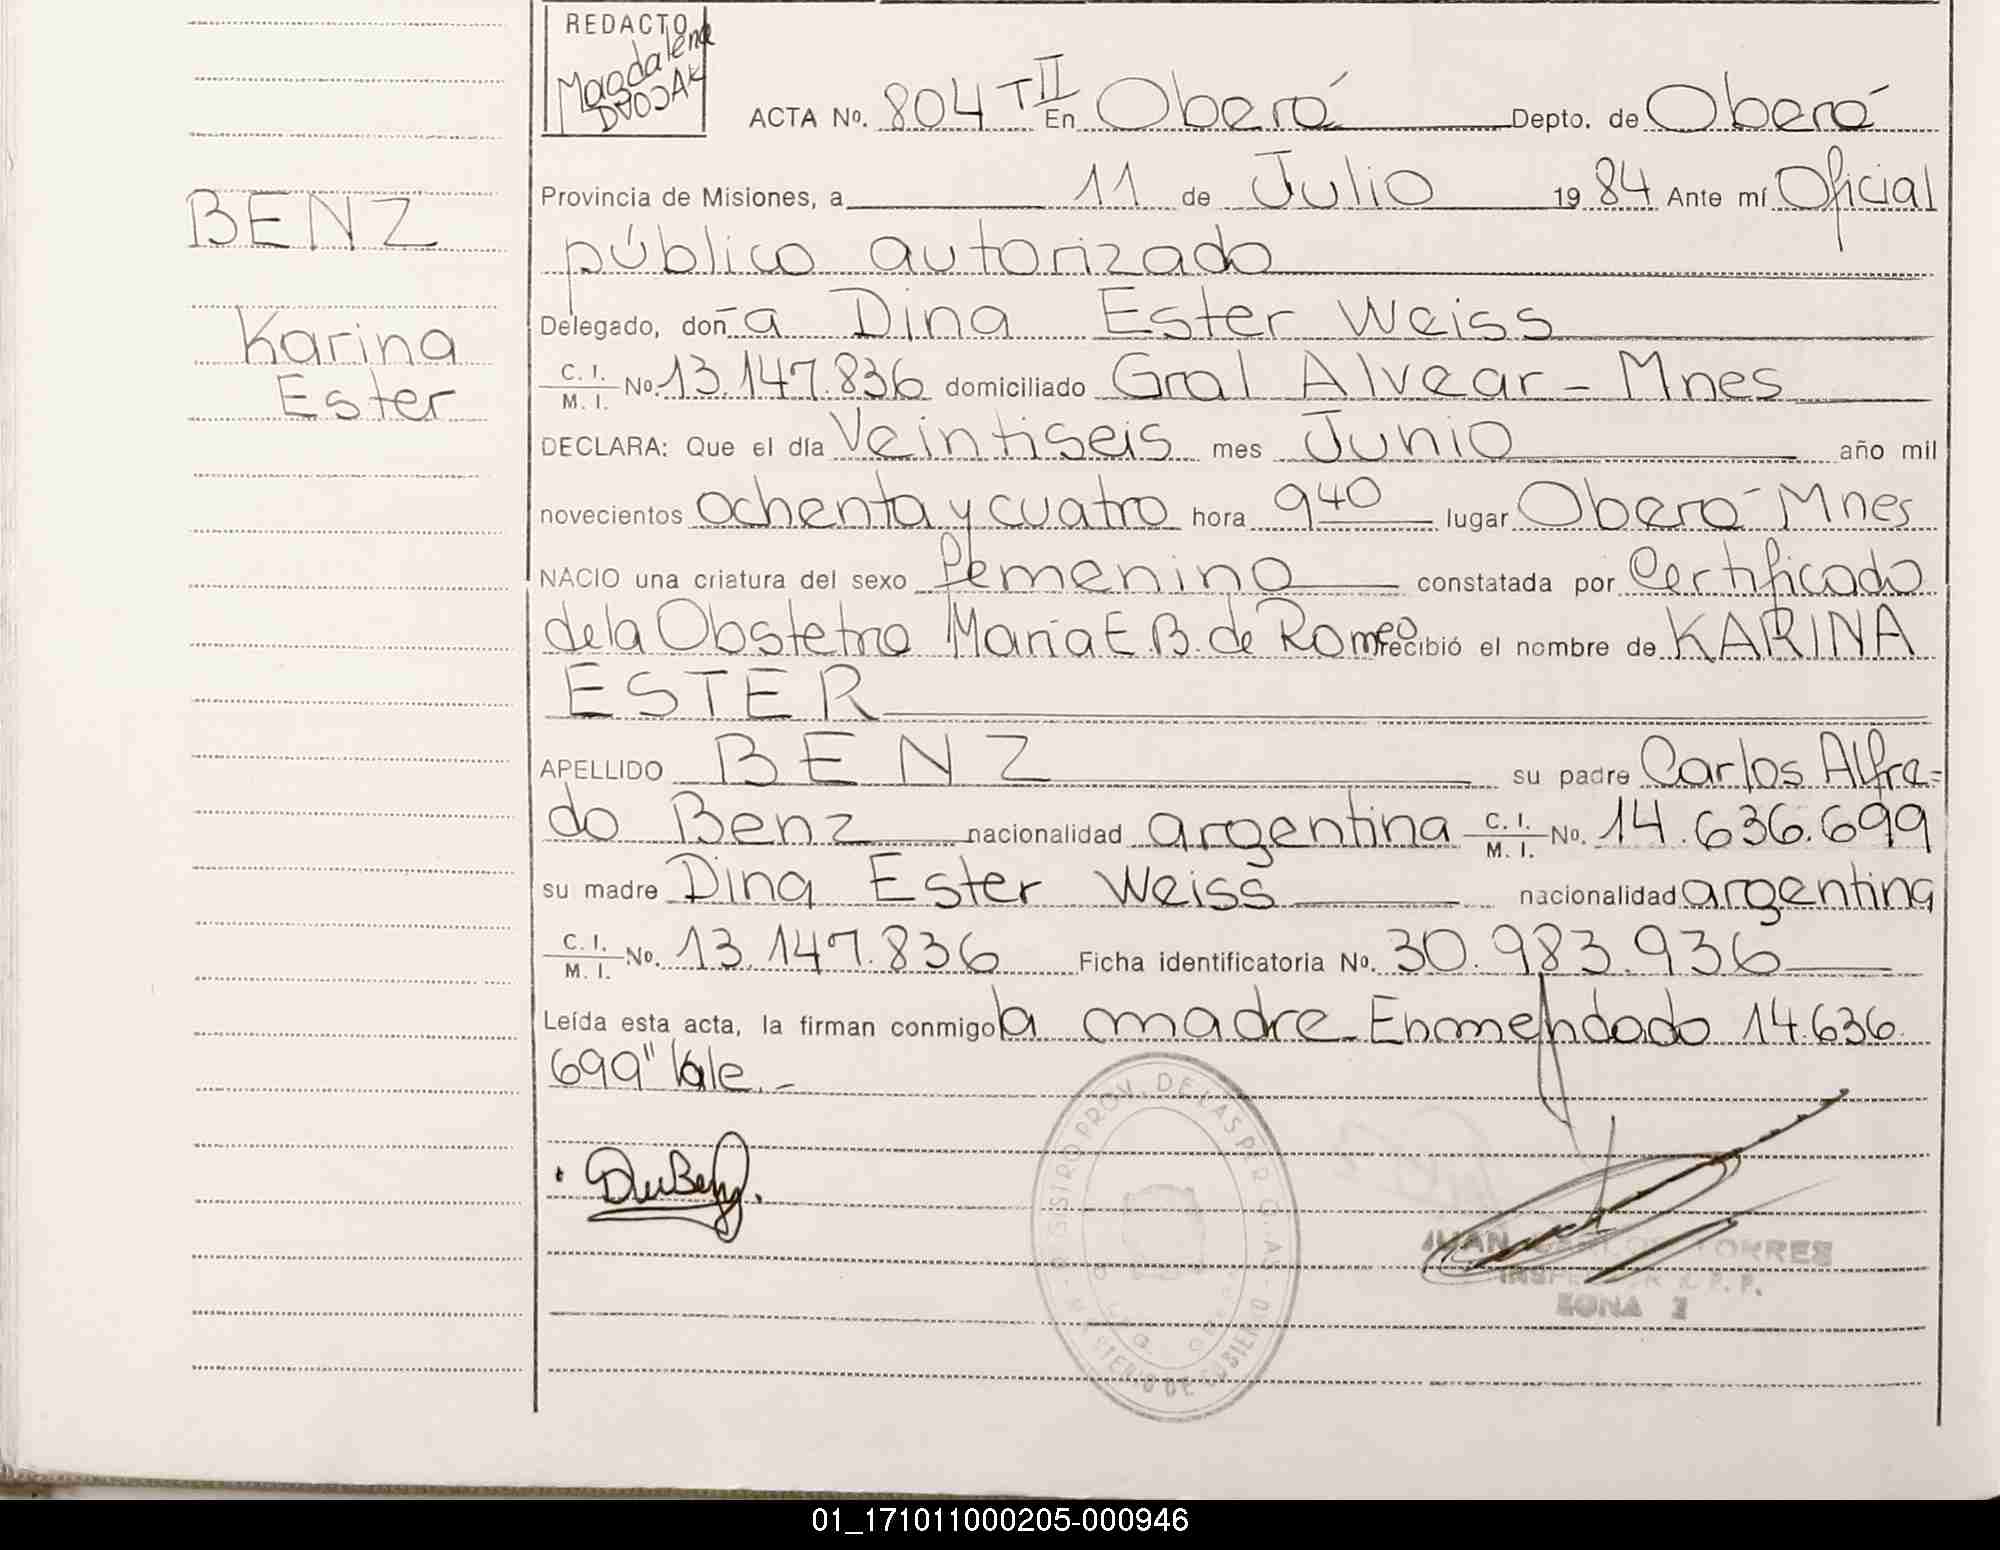 REDACTO
Magdalena
DROJAK
ACTA No. 804 T II En Oberá Depto. de Oberá
Provincia de Misiones, a 11 de Julio 1984 Ante mí Oficial
público autorizado
Delegado, don̄ a Dina Ester Weiss
C. I. / M. I. No. 13.147.836 domiciliado Gral Alvear - Mnes
DECLARA: Que el día Veintiseis mes Junio año mil
novecientos ochenta y cuatro hora 9 40 lugar Oberá - Mnes
NACIO una criatura del sexo femenino constatada por Certificado
de la Obstetra María E. B. de Romeo recibió el nombre de KARINA
ESTER
APELLIDO BENZ su padre Carlos Alfre=
do Benz nacionalidad argentina C. I. / M. I. No. 14.636.699
su madre Dina Ester Weiss nacionalidad argentina
C. I. / M. I. No. 13.147.836 Ficha identificatoria No. 30.983.936
Leída esta acta, la firman conmigo la madre - Enmendado 14.636.
699" Vale. -
BENZ
Karina
Ester
JUAN CARLOS TORRES
ZONA 2
01_171011000205-000946